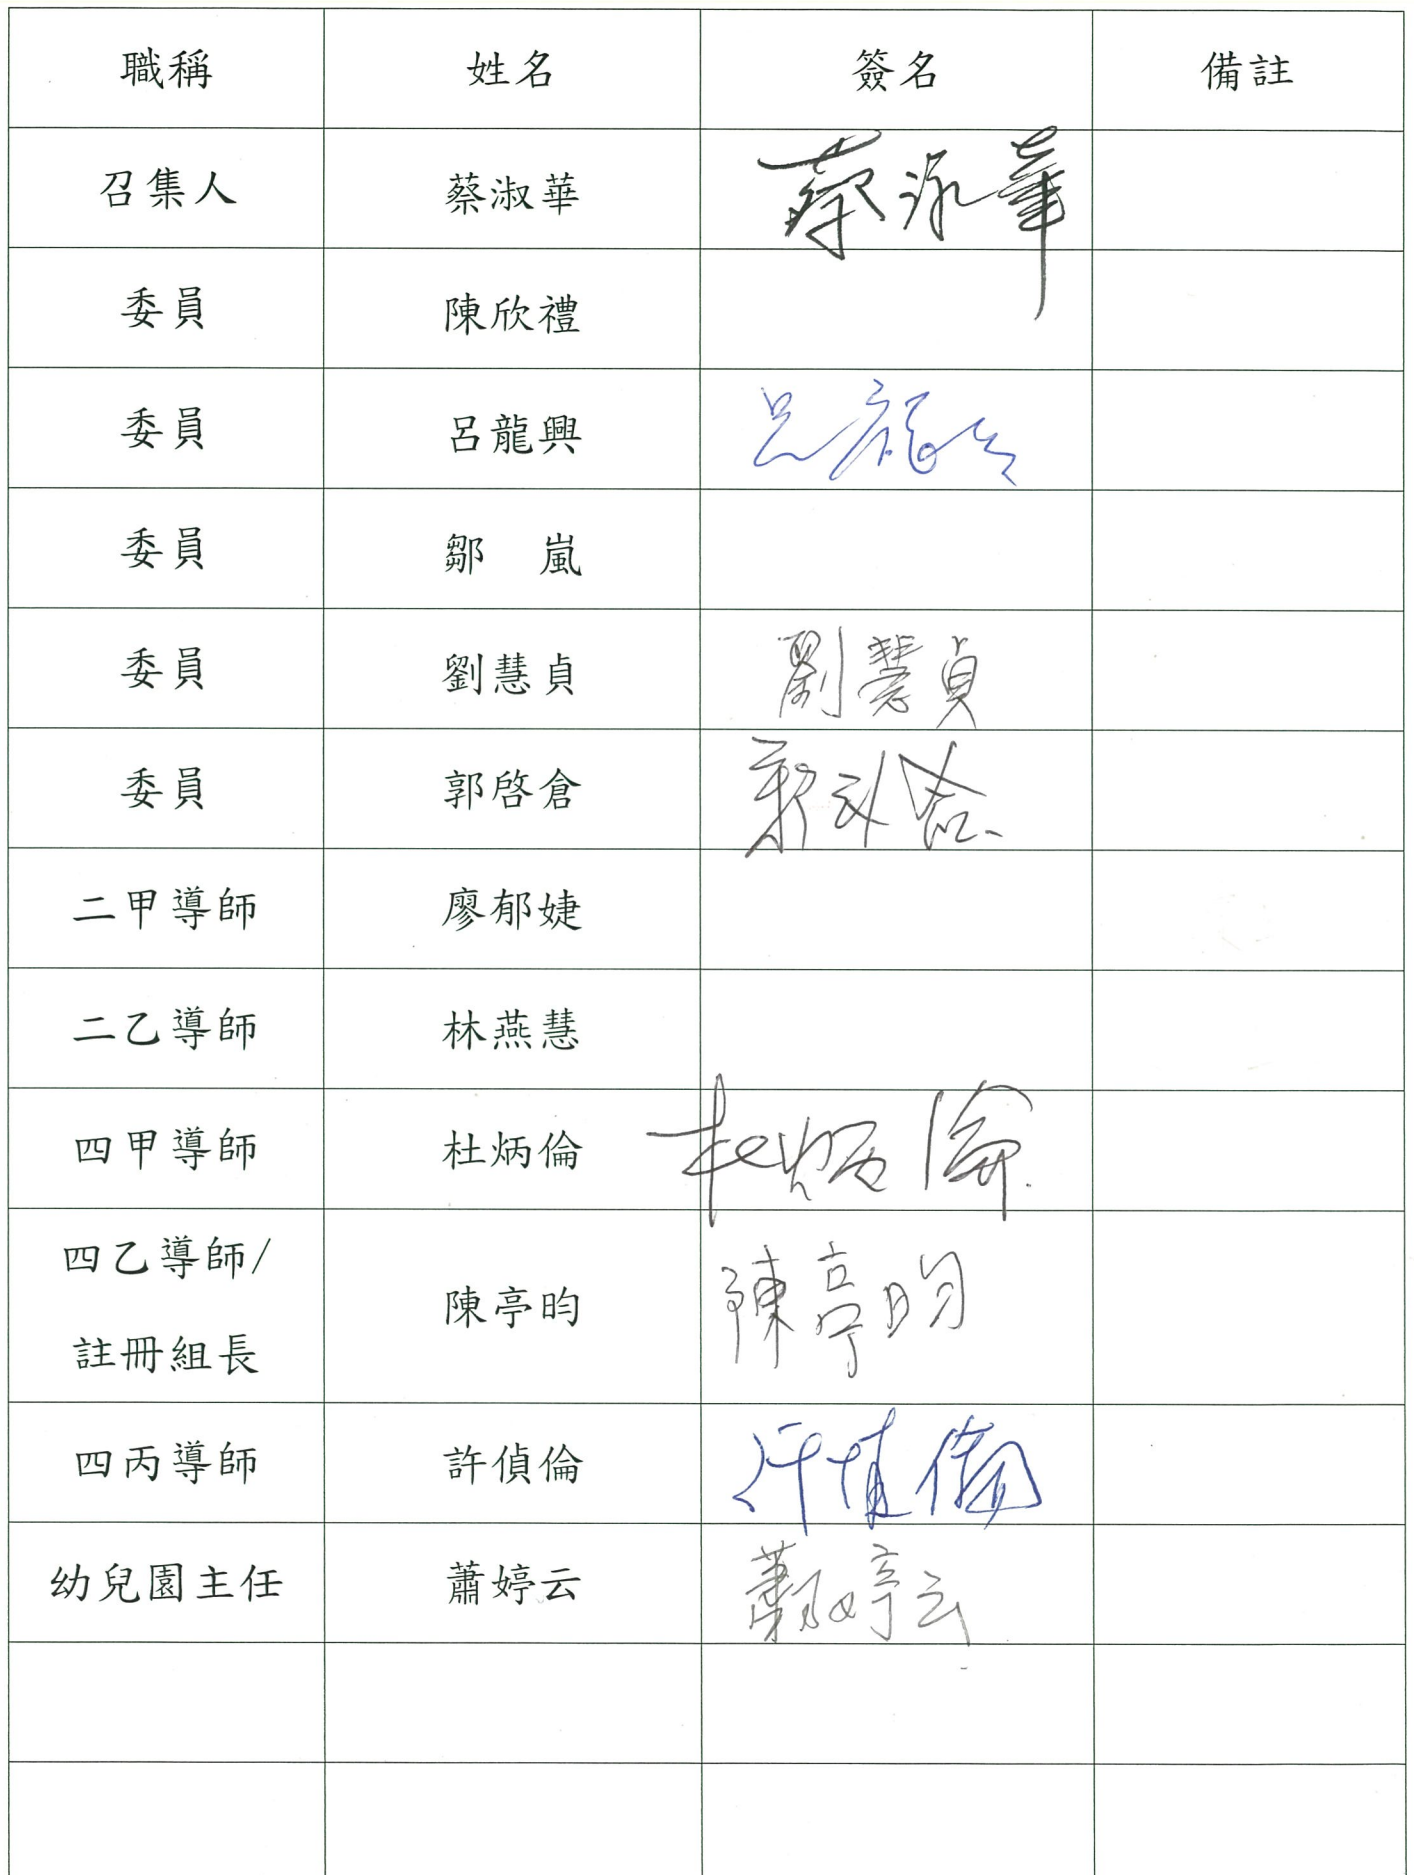 職稱 姓名 簽名 備註
召集人 蔡淑華 蔡淑華
委員 陳欣禮
委員 呂龍興 呂龍興
委員 鄒 嵐
委員 劉慧貞 劉慧貞
委員 郭啓倉 郭啓倉
二甲導師 廖郁婕
二乙導師 林燕慧
四甲導師 杜炳倫 杜炳倫
四乙導師/
註冊組長 陳亭昀 陳亭昀
四丙導師 許偵倫 許偵倫
幼兒園主任 蕭婷云 蕭婷云